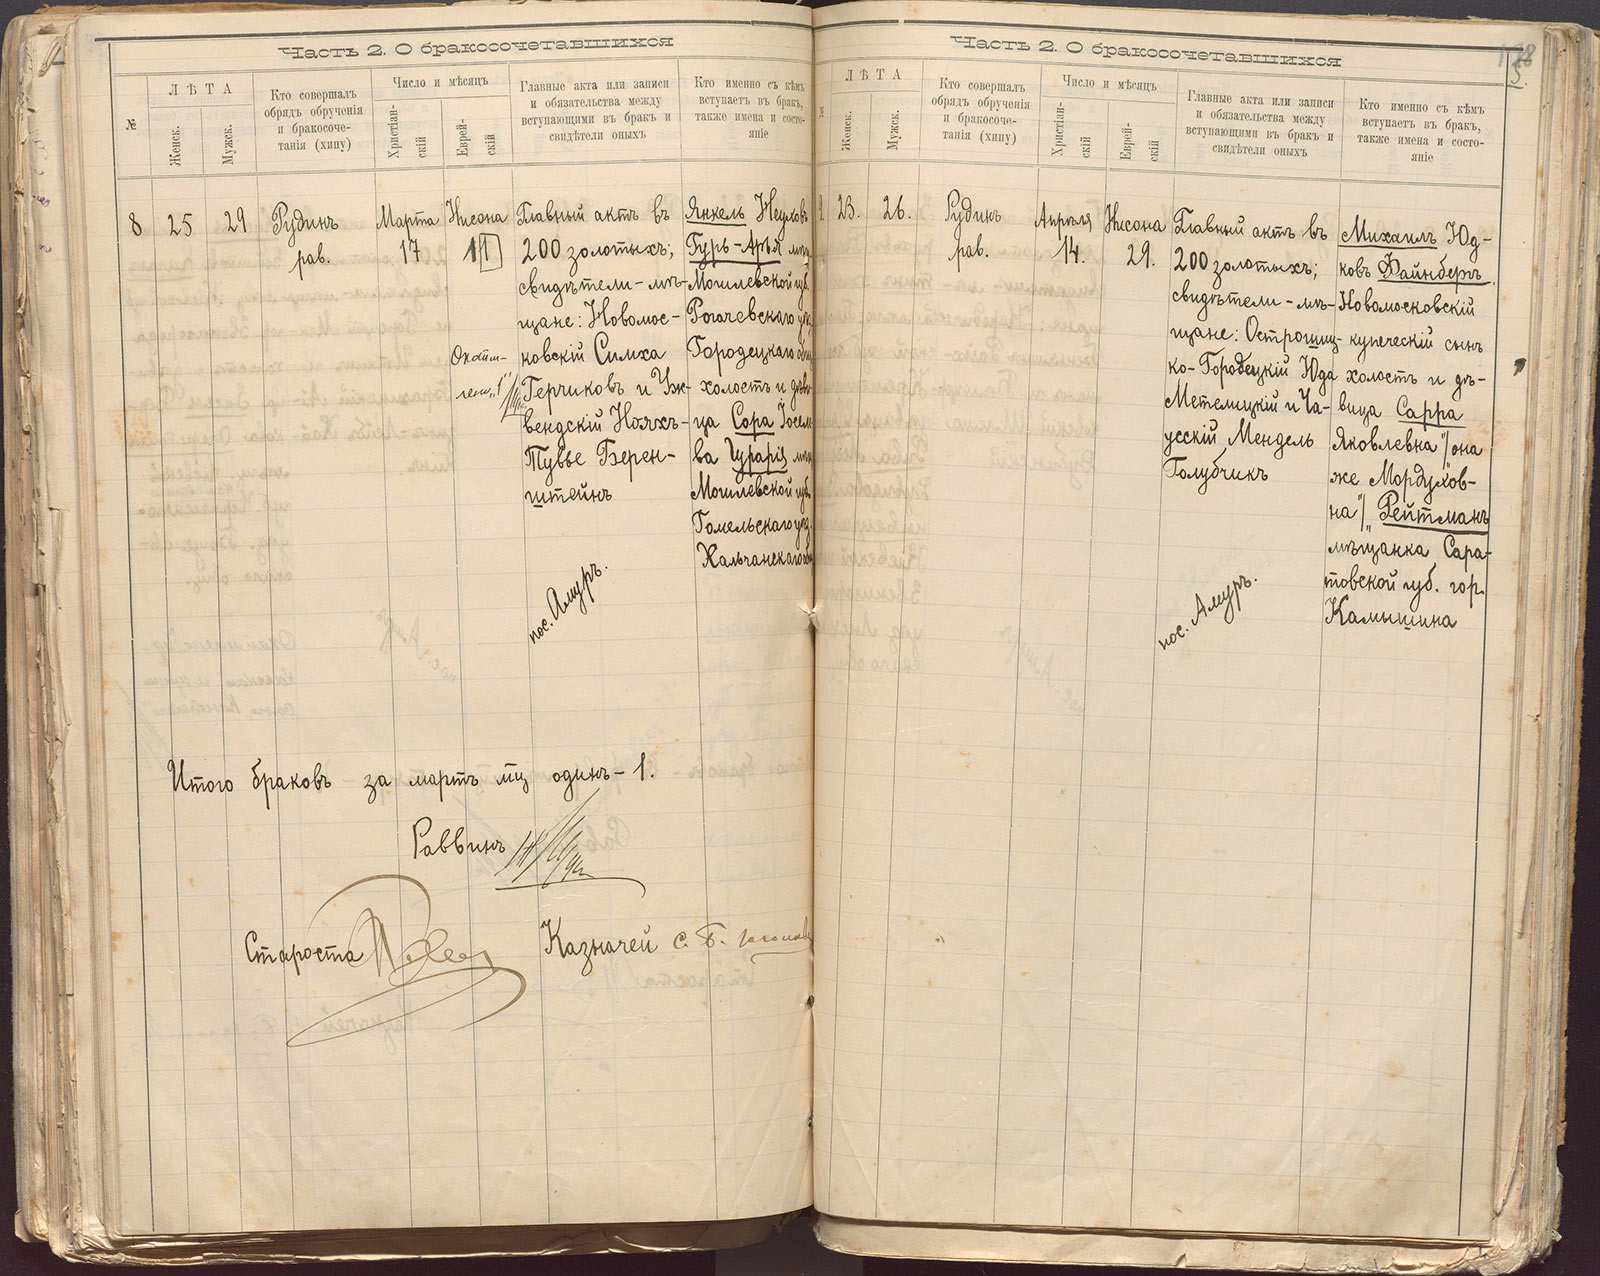 Часть 2. О бракосочетавшихся
№
ЛѢТА
Женск.
Мужск.
Кто совершалъ
обрядъ обрученія
и бракосоче-
танія (хипу)
Число и мѣсяцъ
Христіан-
скій
Еврей-
скій
Главные акта или записи
и обязательства между
вступающими въ бракъ и
свидѣтели оныхъ
Кто именно съ кѣмъ
вступаетъ въ бракъ,
также имена и состо-
яніе
8
25
29
Рудинъ
рав.
Марта
17
Нисона
11
Главный актъ въ
200 золотыхъ;
свидѣтели – мѣ-
щане: Новомос-
ковскій Симха
Герчиковъ и Уж-
вендскій Ноахъ-
Тувье Берен-
штейнъ
пос. Амуръ.
Янкель
Гуръ-Арья
Могилевской губ.
Рогачевскаго
Городецкаго
холостъ и дѣви-
ца Сора Іосел
ва Чурарія
Могилевской губ.
Гомельскаго уѣз.
Хальчанскаго
Итого браковъ за мартъ мц одинъ – 1.
Раввинъ
Староста
Казначей С. Б.
Часть 2. О бракосочетавшихся
5.
№
ЛѢТА
Женск.
Мужск.
Кто совершалъ
обрядъ обрученія
и бракосоче-
танія (хипу)
Число и мѣсяцъ
Христіан-
скій
Еврей-
скій
Главные акта или записи
и обязательства между
вступающими въ бракъ и
свидѣтели оныхъ
Кто именно съ кѣмъ
вступаетъ въ бракъ,
также имена и состо-
яніе
9.
23.
26.
Рудинъ
рав.
Апрѣля
14.
Нисона
29.
Главный актъ въ
200 золотыхъ;
свидѣтели – мѣ-
щане: Острошиц-
ко-Городецкій Юда
Метелицкій и Ча-
усскій Мендель
Голубчикъ
пос. Амуръ.
Михаилъ Юд-
ковъ Файнбергъ
Новомосковскій
купеческій сынъ
холостъ и дѣ-
вица Сарра
Яковлевна "/она
же Мордухов-
на"/ Рейтманъ
мѣщанка Сара-
товской губ. гор.
Камышина